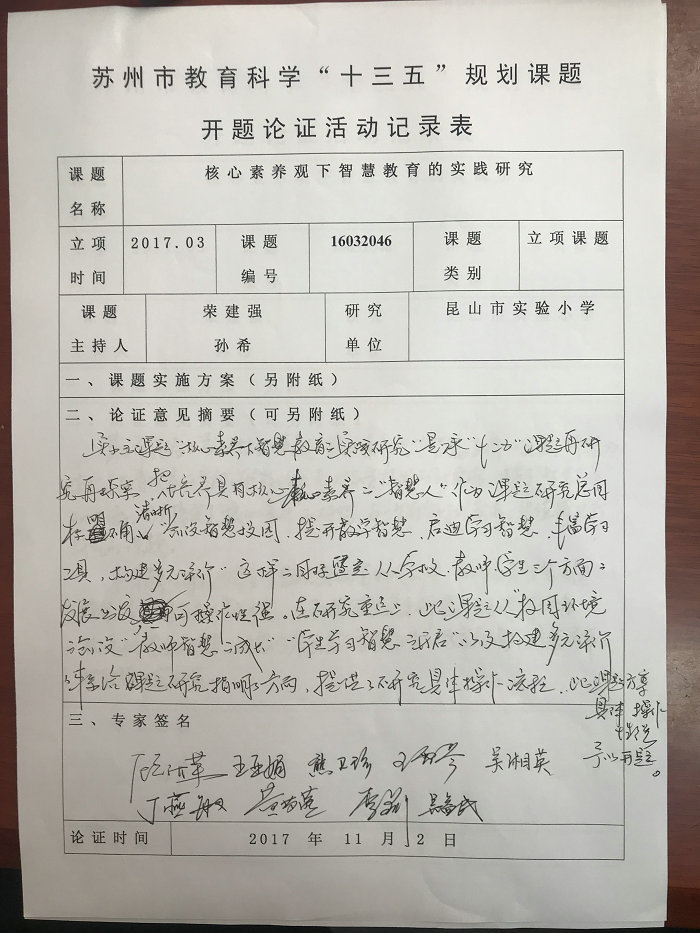 苏州市教育科学“十三五”规划课题
开题论证活动记录表
课题名称 核心素养观下智慧教育的实践研究
立项时间 2017.03 课题编号 16032046 课题类别 立项课题
课题主持人 荣建强 孙希 研究单位 昆山市实验小学
一、课题实施方案（另附纸）
二、论证意见摘要（可另附纸）
课题“核心素养下智慧教育实践研究”是承“十二五”课题再研
究再探索 把培养具有核心素养之“智慧人”作为课题研究总目
标 明确 清晰 “智慧校园，提升教学智慧，启迪学习智慧，丰富学习
工具，构建多元评价”这样 目标 从学校、教师、学生三个方面
发展出发 可操作性强。在研究重点上，此课题从“校园环境
“教师智慧之成长”“学生学习智慧之开启”以及构建多元评价
课题研究指明了方向，提供了研究具体操作流程，此课题
具体操作
予以开题。
三、专家签名
王亚娟 熊卫珍 吴湘英
丁燕敏
论证时间 2017 年 11 月 2 日